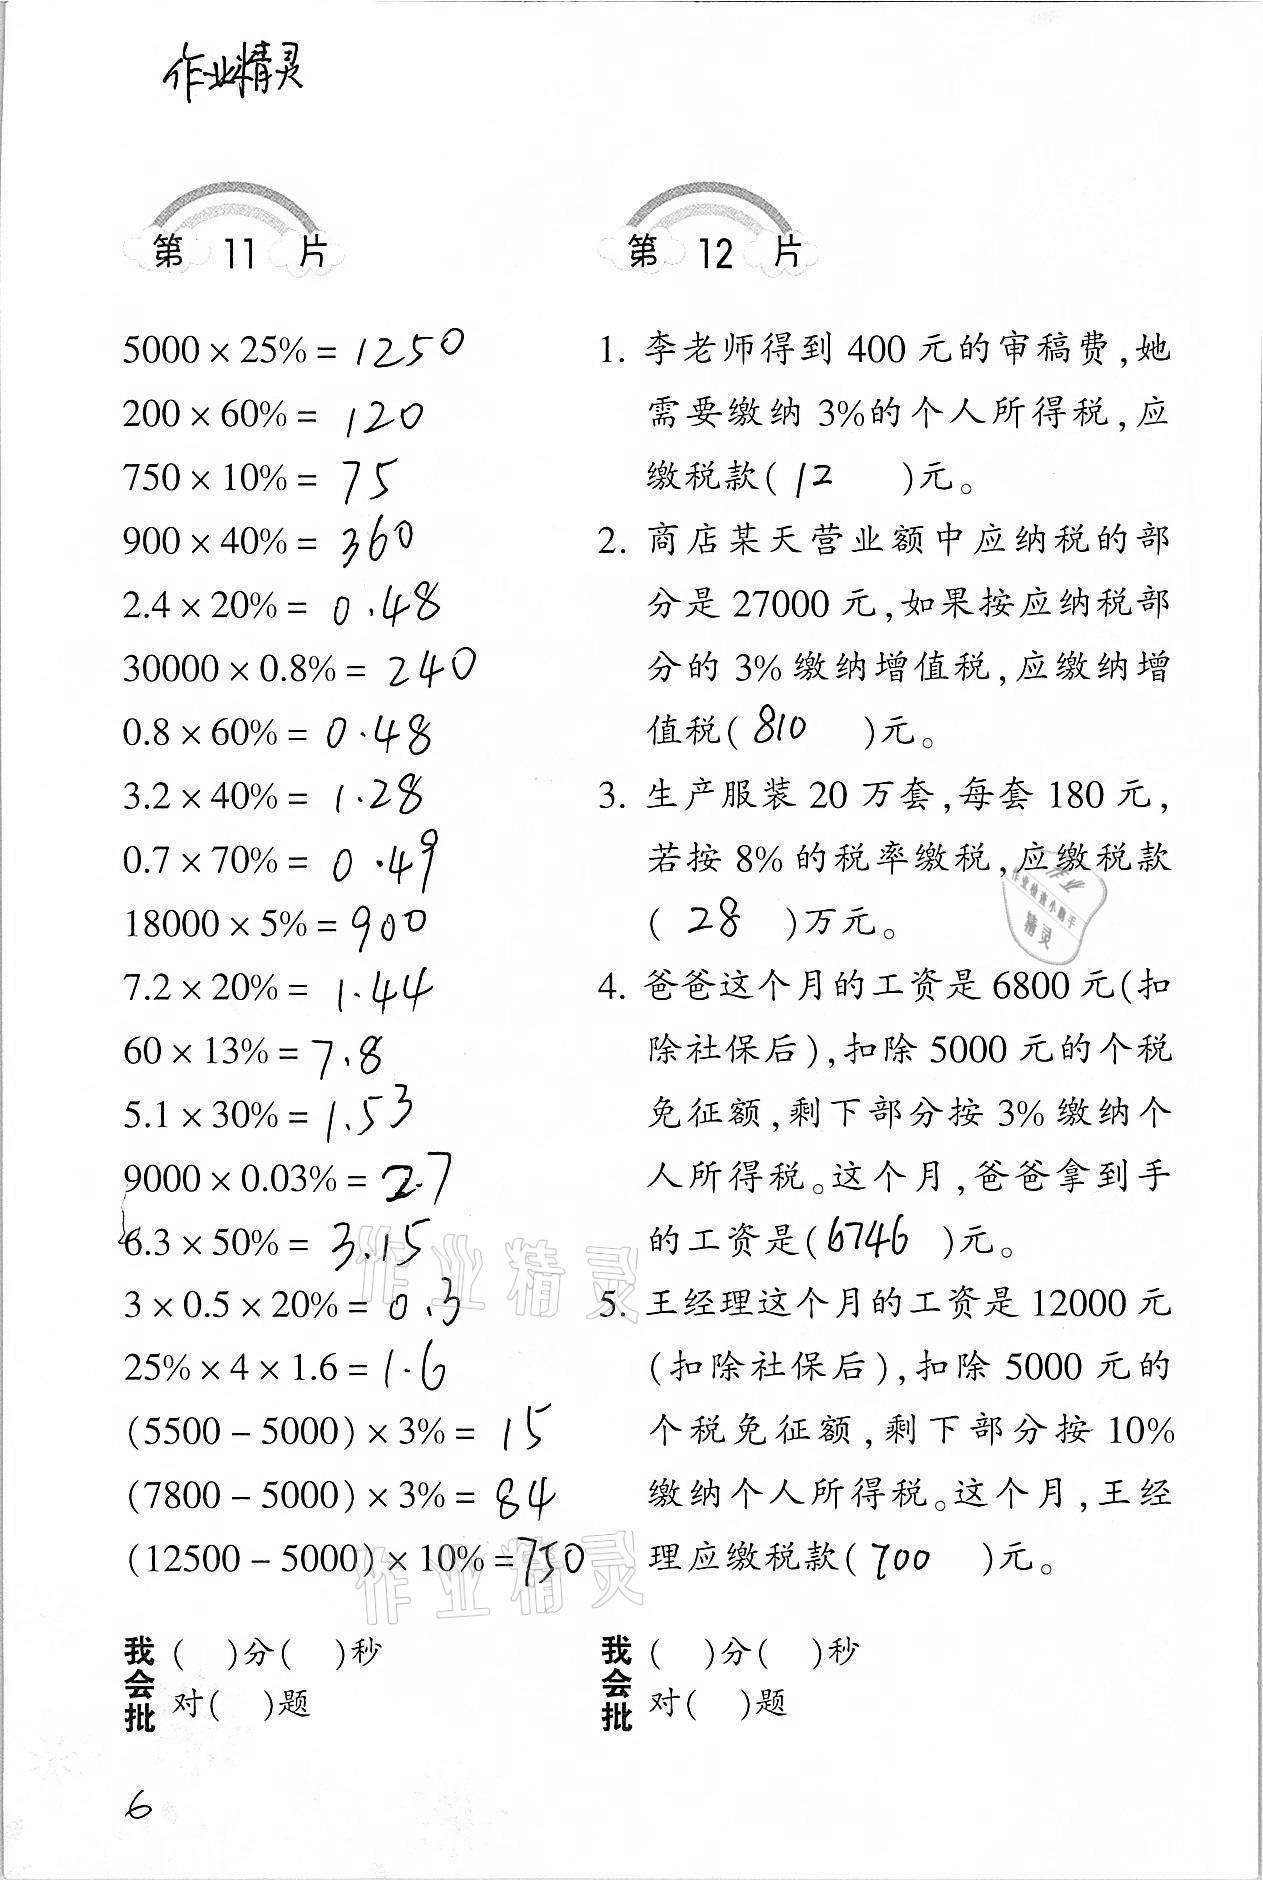 作业精灵
第 11 片
5000 × 25% = 1250
200 × 60% = 120
750 × 10% = 75
900 × 40% = 360
2.4 × 20% = 0.48
30000 × 0.8% = 240
0.8 × 60% = 0.48
3.2 × 40% = 1.28
0.7 × 70% = 0.49
18000 × 5% = 900
7.2 × 20% = 1.44
60 × 13% = 7.8
5.1 × 30% = 1.53
9000 × 0.03% = 2.7
6.3 × 50% = 3.15
3 × 0.5 × 20% = 0.3
25% × 4 × 1.6 = 1.6
(5500 − 5000) × 3% = 15
(7800 − 5000) × 3% = 84
(12500 − 5000) × 10% = 750
我会批
( )分( )秒
对( )题
第 12 片
1. 李老师得到 400 元的审稿费,她
需要缴纳 3%的个人所得税,应
缴税款( 12 )元。
2. 商店某天营业额中应纳税的部
分是 27000 元,如果按应纳税部
分的 3% 缴纳增值税,应缴纳增
值税( 810 )元。
3. 生产服装 20 万套,每套 180 元,
若按 8% 的税率缴税,应缴税款
( 28 )万元。
4. 爸爸这个月的工资是 6800 元(扣
除社保后),扣除 5000 元的个税
免征额,剩下部分按 3% 缴纳个
人所得税。这个月,爸爸拿到手
的工资是( 6746 )元。
5. 王经理这个月的工资是 12000 元
(扣除社保后),扣除 5000 元的
个税免征额,剩下部分按 10%
缴纳个人所得税。这个月,王经
理应缴税款( 700 )元。
我会批
( )分( )秒
对( )题
作业
作业检查小助手
精灵
作业精灵
作业精灵
6